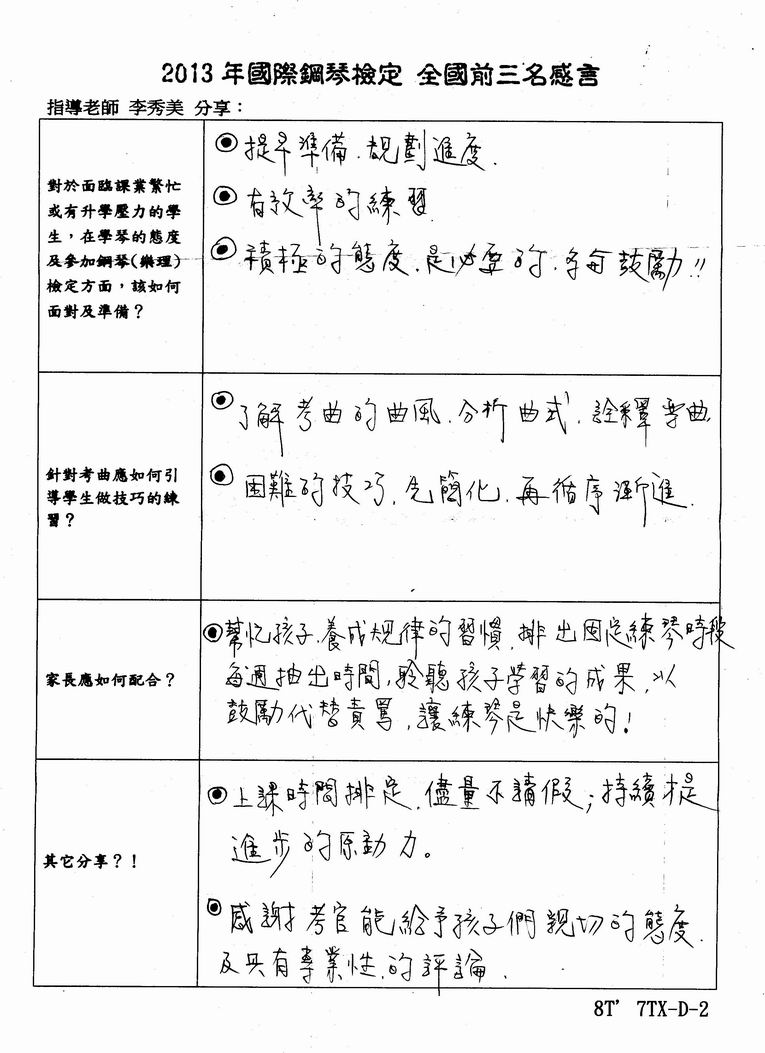 2013 年國際鋼琴檢定 全國前三名感言
指導老師 李秀美 分享：
對於面臨課業繁忙
或有升學壓力的學
生，在學琴的態度
及參加鋼琴(樂理)
檢定方面，該如何
面對及準備？
◉提早準備．規劃進度．
◉有效率的練習
◉積極的態度．是必要的．多鼓勵!!
針對考曲應如何引
導學生做技巧的練
習？
◉了解考曲的曲風．分析曲式．詮釋樂曲
◉困難的技巧．先簡化．再循序漸進．
家長應如何配合？
◉幫忙孩子．養成規律的習慣．排出固定練琴時段
每週抽出時間，聆聽孩子學習的成果．以
鼓勵代替責罵，讓練琴是快樂的！
其它分享？！
◉上課時間排定．儘量不請假；持續是
進步的原動力。
◉感謝考官能給予孩子們親切的態度．
及具有專業性．的評論．
8T' 7TX-D-2